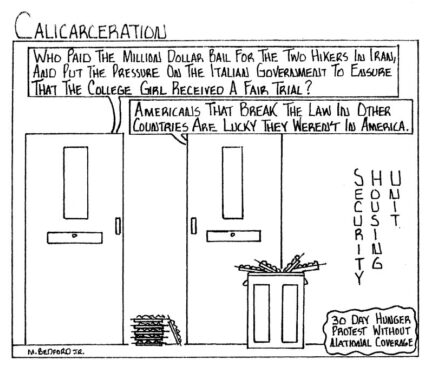 CALICARCERATION
WHO PAID THE MILLION DOLLAR BAIL FOR THE TWO HIKERS IN IRAN,
AND PUT THE PRESSURE ON THE ITALIAN GOVERNMENT TO ENSURE
THAT THE COLLEGE GIRL RECEIVED A FAIR TRIAL?
AMERICANS THAT BREAK THE LAW IN OTHER
COUNTRIES ARE LUCKY THEY WEREN'T IN AMERICA.
SECURITY
HOUSING
UNIT
30 DAY HUNGER
PROTEST WITHOUT
NATIONAL COVERAGE
M. BEDFORD JR.